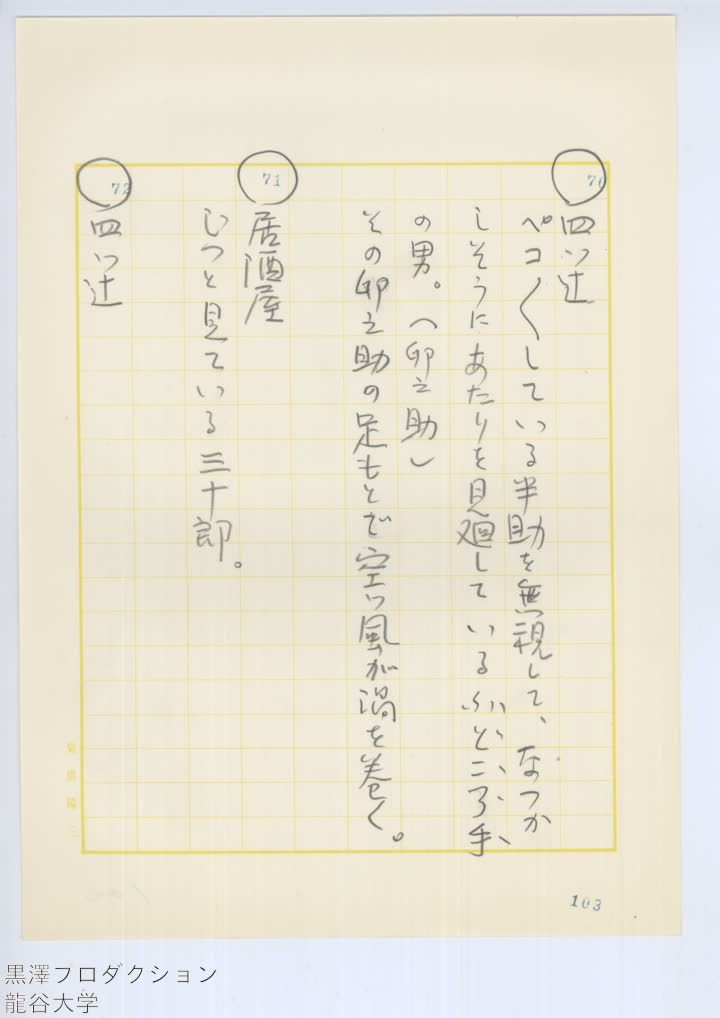 70
四ッ辻
ペコ〱している半助を無視して、なつか
しそうにあたりを見廻しているふところ手
の男。(卯之助)
その卯之助の足もとで空ッ風が渦を巻く。
71
居酒屋
じっと見ている三十郎。
72
四ッ辻
103
黒澤プロダクション
龍谷大学